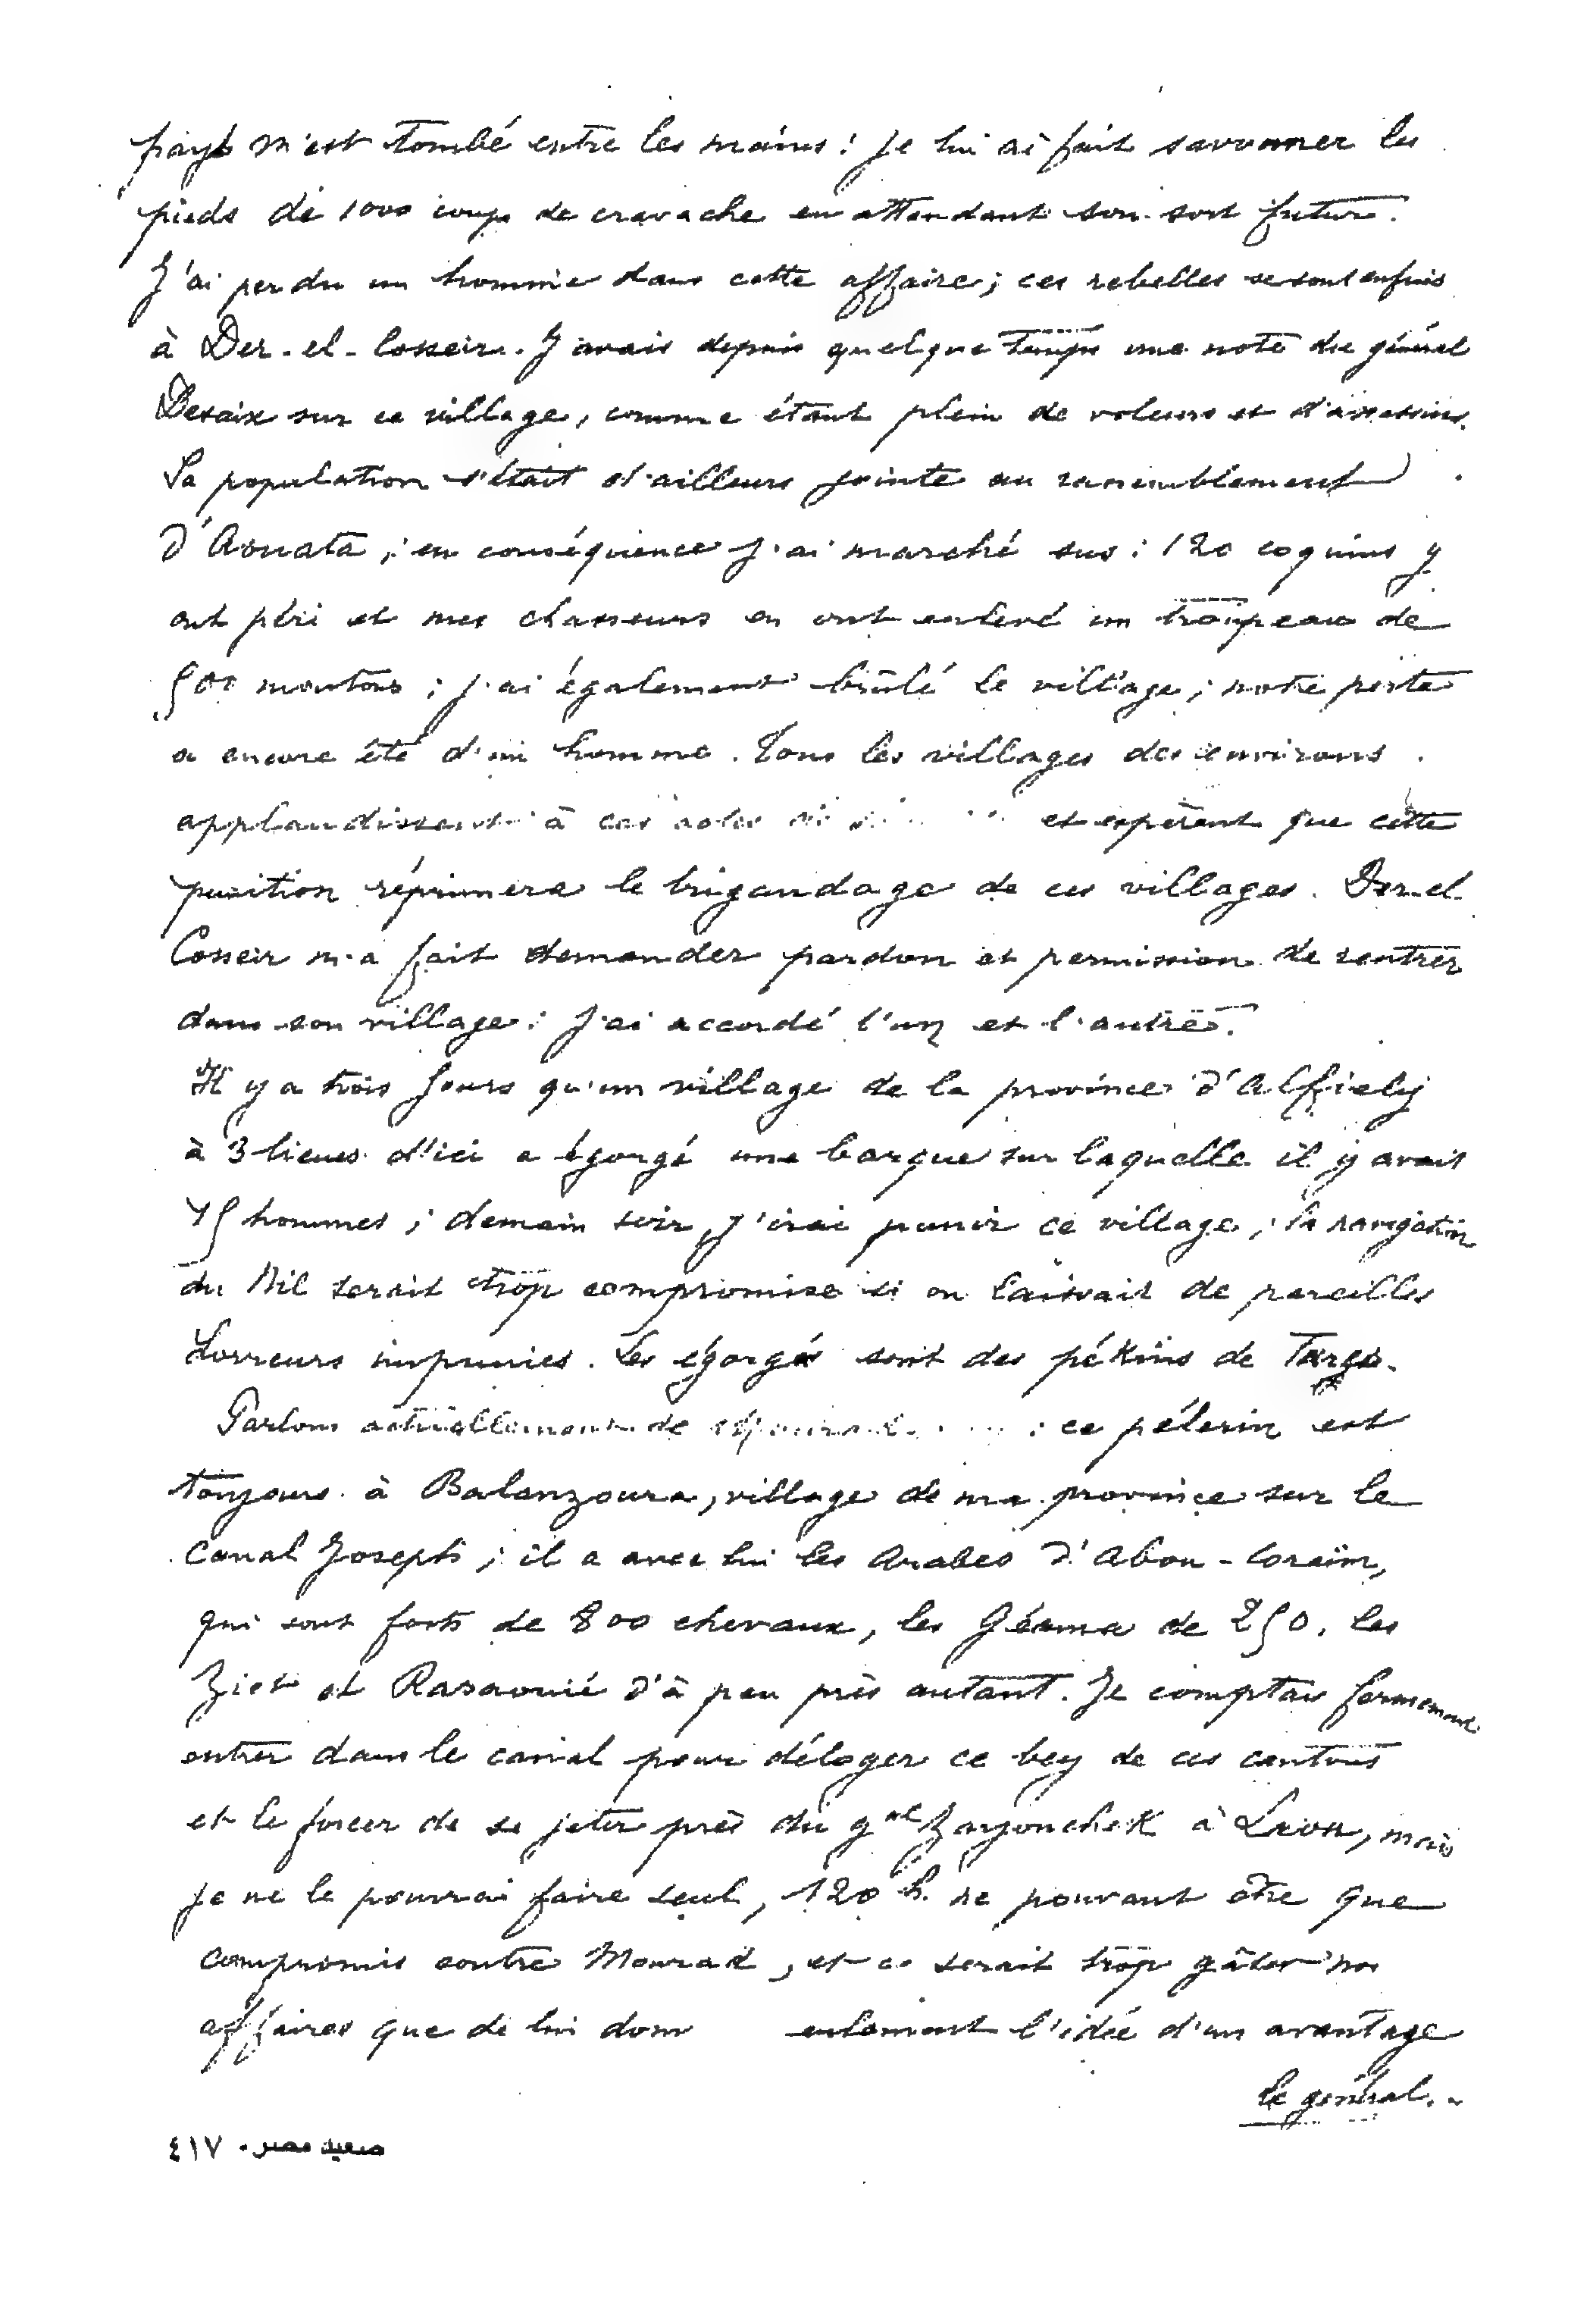 pays m'est tombé entre les mains : je lui ai fait savonner les
pieds de 1000 coups de cravache en attendant son sort futur.
J'ai perdu un homme dans cette affaire ; ces rebelles se sont enfuis
à Der-el-Cosseir. J'avais depuis quelque temps une note du général
Desaix sur ce village, comme étant plein de voleurs et d'assassins.
Sa population s'était d'ailleurs jointe au rassemblement
d'Aouata ; en conséquence j'ai marché sus : 120 coquins y
ont péri et mes chasseurs en ont enlevé un troupeau de
500 moutons ; j'ai également brûlé le village ; notre perte
a encore été d'un homme. Tous les villages des environs
applaudissent à ces actes et espèrent que cette
punition réprimera le brigandage de ces villages. Der-el
Cosseir m'a fait demander pardon et permission de rentrer
dans son village : j'ai accordé l'un et l'autre.
Il y a trois jours qu'un village de la province d'Alfiely
à 3 lieues d'ici a égorgé une barque sur laquelle il y avait
15 hommes ; demain soir, j'irai punir ce village ; la navigation
du Nil serait trop compromise si on laissait de pareilles
horreurs impunies. Les égorgés sont des pékins de
Parlons actuellement de : ce pélerin est
toujours à Balanzoura, village de ma province sur le
Canal Joseph ; il a avec lui les Arabes d'Abou-Coraïm,
qui sont forts de 800 chevaux, les Géama de 250, les
et Rasaouié d'à peu près autant. Je comptais fermement
entrer dans le canal pour déloger ce bey de ces cantons
et le forcer de se jeter près du gal Zayonchek à mais
je ne le pourrai faire seul, 120 h. ne pouvant être que
compromis contre Mourad, et ce serait trop gâter nos
affaires que de lui donn eulement l'idée d'un avantage
Le général.
صعيد مصر - ٤١٧